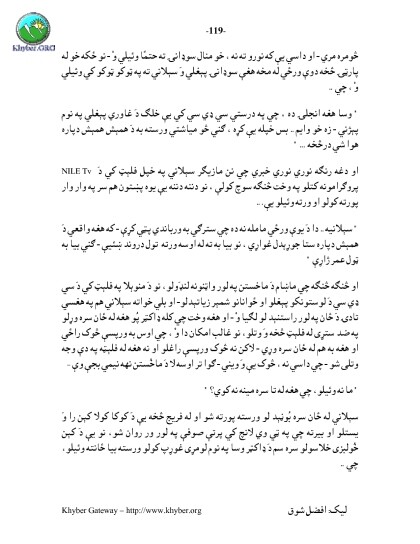 -119-
Khyber.ORG
څومره مري - او داسي يې که نورو ته نه ، خو منال سوډانۍ ته حتمًا وئيلي وْ - نو ځکه خو له
پارټۍ څخه دوې ورځي له مخه هغې سوډانۍ پېغلي وَ سېلانۍ ته په ټوکو ټوکو کي وئيلي
وْ ، چي ..
" وسا هغه انجلۍ ده ، چي په درستي سي ډي سي کي يې خلګ دَ غاوري پېغلي په نوم
پېژني - زه خو وايم .. بس خپله يې کړه ، ګني څو مياشتي ورسته به دَ همېش همېش دپاره
هوا شي درڅخه ... "
او دغه رنګه نوري نوري خبري چي نن مازيګر سېلانۍ په خپل فليټ کي دَ NILE Tv
پروګرامونه کتلو په وخت څنګه سوچ کولې ، نو دننه دننه يې يوه پښتون هم سر په وار وار
پورته کولو او ورته وئيلو يې ...
" سېلانيه .. دا دَ يوې ورځي مامله نه ده چي سترګي به ورباندي پټي کړې - که هغه واقعي دَ
همېش دپاره ستا جوړېدل غواړي ، نو بيا به ته له اوسه ورته تول دروند ښئيې - ګني بيا به
ټول عمر ژاړې "
او څنګه څنګه چي ماښام دَ ماخستن په لور واټونه لنډولو ، نو دَ منوېلا په فليټ کي دَ سي
ډي سي دَ لوستونکو پېغلو او ځوانانو شمېر زياتېدلو - او بلي خواته سېلانۍ هم په هغسي
تادۍ دَ ځان په لور راستنېدلو لګيا وْ - او هغه وخت چي کله ډاکټر پُو هغه له ځان سره وړلو
په ضد سترۍ له فليټ څخه وَوتلو ، نو غالب امکان دا وْ ، چي اوس به ورپسې څوک راځي
او هغه به هم له ځان سره وړي - لاکن نه څوک ورپسې راغلو او نه هغه له فليټه په دې وجه
وتلی شو - چي داسي نه ، څوک يې وَ ويني - ګوا تر اوسه لا دَ ماخستن نهه نيمي بجې وې -
" ما نه وئيلو ، چي هغه له تا سره مينه نه کوي ؟ "
سېلانۍ له ځان سره بُوڼېد لو ورسته پورته شو او له فريج څخه يې دَ کوکا کولا کېن راوَ
يستلو او بېرته چي په ټي وي لانچ کي پرتې صوفې په لور ور روان شو ، نو يې دَ کېن
څولېزی خلاسولو سره سم دَ ډاکټر وسا په نوم لومړی غوړپ کولو ورسته بيا ځانته وئيلو ،
چي ..
ليک: افضل شوق
Khyber Gateway – http://www.khyber.org